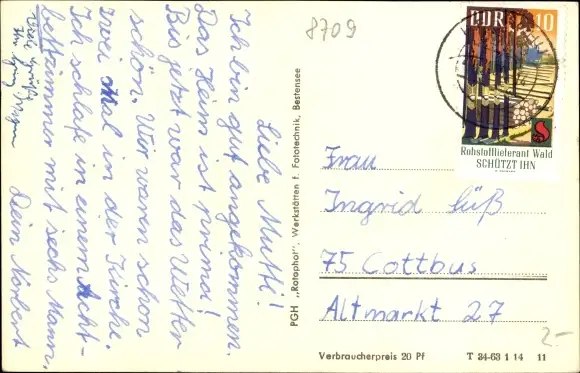 Liebe Mutti!
Ich bin gut angekommen.
Das Heim ist prima!
Bis jetzt war das Wetter
schön. Wir waren schon
zwei Mal in der Kirche.
Ich schlafe in einem Acht-
bettzimmer mit sechs Mann.
Dein Norbert
Viele Grüße
PGH „Rotophot", Werkstätten f. Fototechnik, Bestensee
8709
DDR 10
Rohstofflieferant Wald
SCHÜTZT IHN
Frau
Ingrid Süß
75 Cottbus
Altmarkt 27
2-
Verbraucherpreis 20 Pf T 34-63 1 14 11